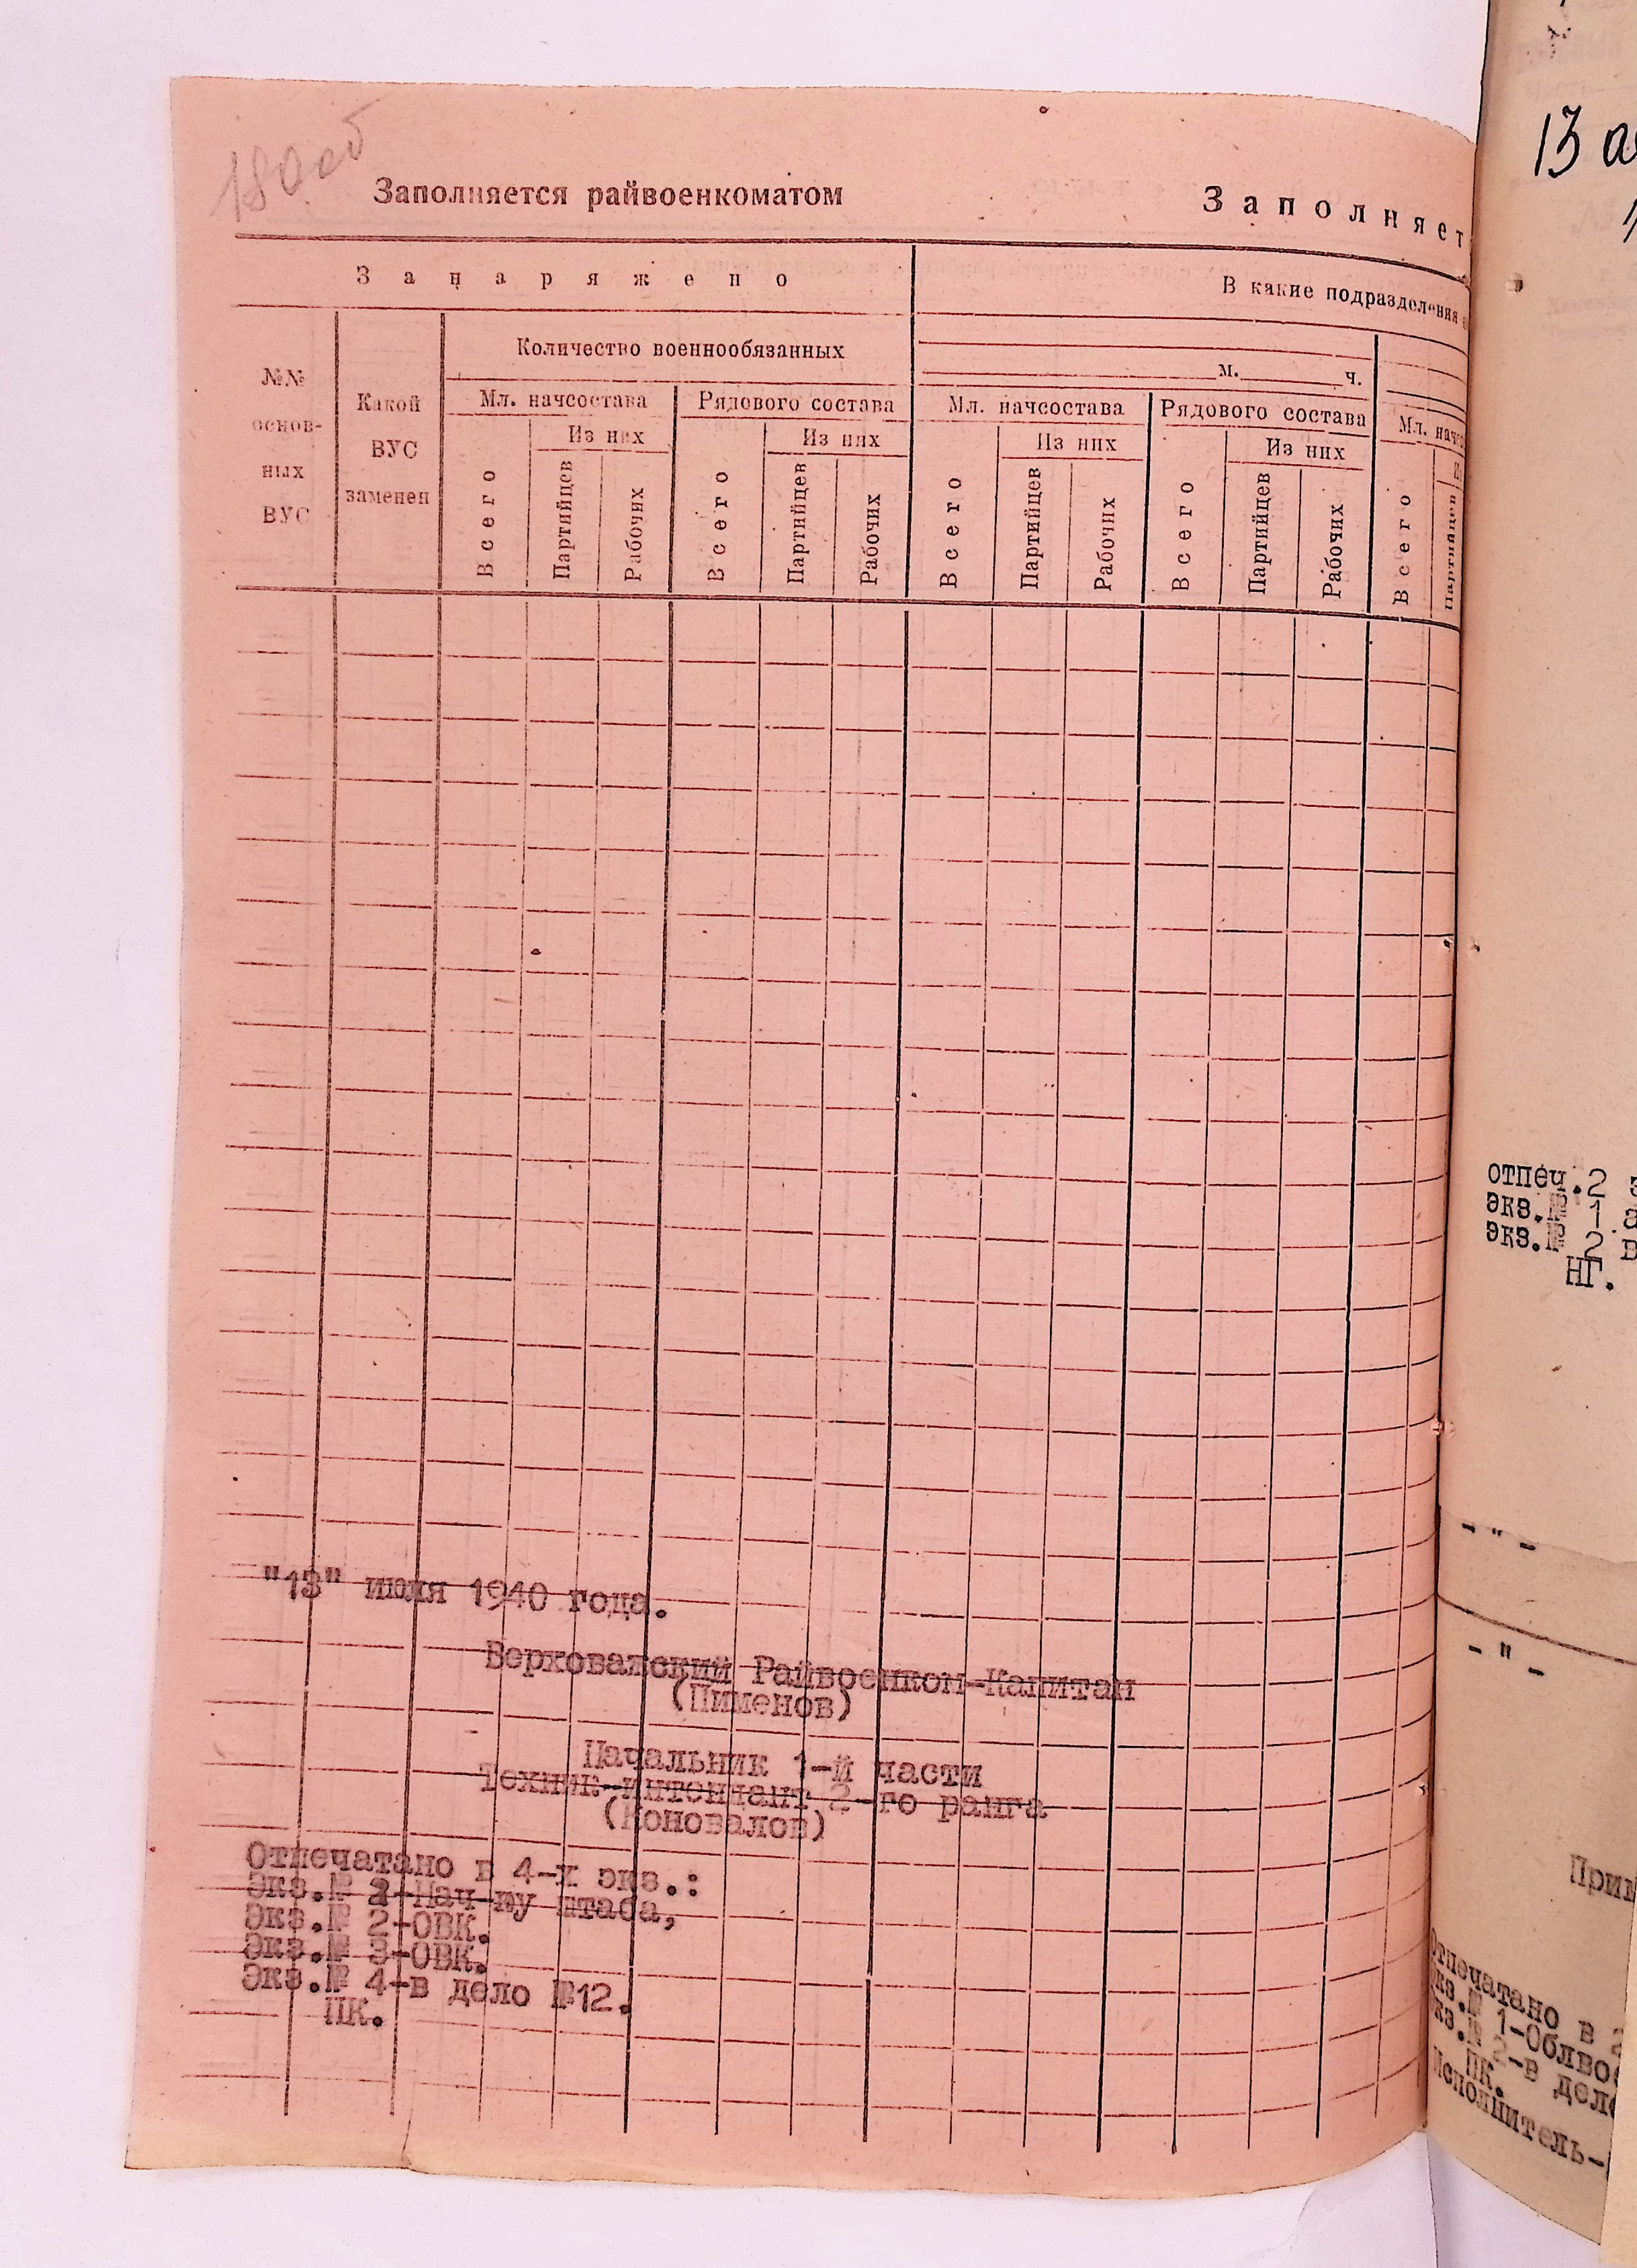 180об
Заполняется райвоенкоматом
Заполняет
Занаряжено
В какие подразделения
№№ основ- ных ВУС
Какой ВУС заменен
Количество военнообязанных
м. ч.
Мл. начсостава
Рядового состава
Мл. начсостава
Рядового состава
Мл. начс
Из них
Из них
Из них
Из них
Всего
Партийцев
Рабочих
Всего
Партийцев
Рабочих
Всего
Партийцев
Рабочих
Всего
Партийцев
Рабочих
Всего
Партийцев
"13" июля 1940 года.
Верховажский Райвоенком-Капитан
(Пименов)
Начальник 1-й части
Техник-интендант 2-го ранга
(Коновалов)
Отпечатано в 4-х экз.:
Экз.№ 1-Нач-ку штаба,
Экз.№ 2-ОВК.
Экз.№ 3-ОВК.
Экз.№ 4-в дело №12.
ПК.
13 а
отпеч.2 э
экз.№ 1
экз.№ 2 в
НГ.
-"-
-"-
Прим
Отпечатано в 2
Экз.№ 1-Облво
Экз.№ 2-в дело
ПК.
Исполнитель-